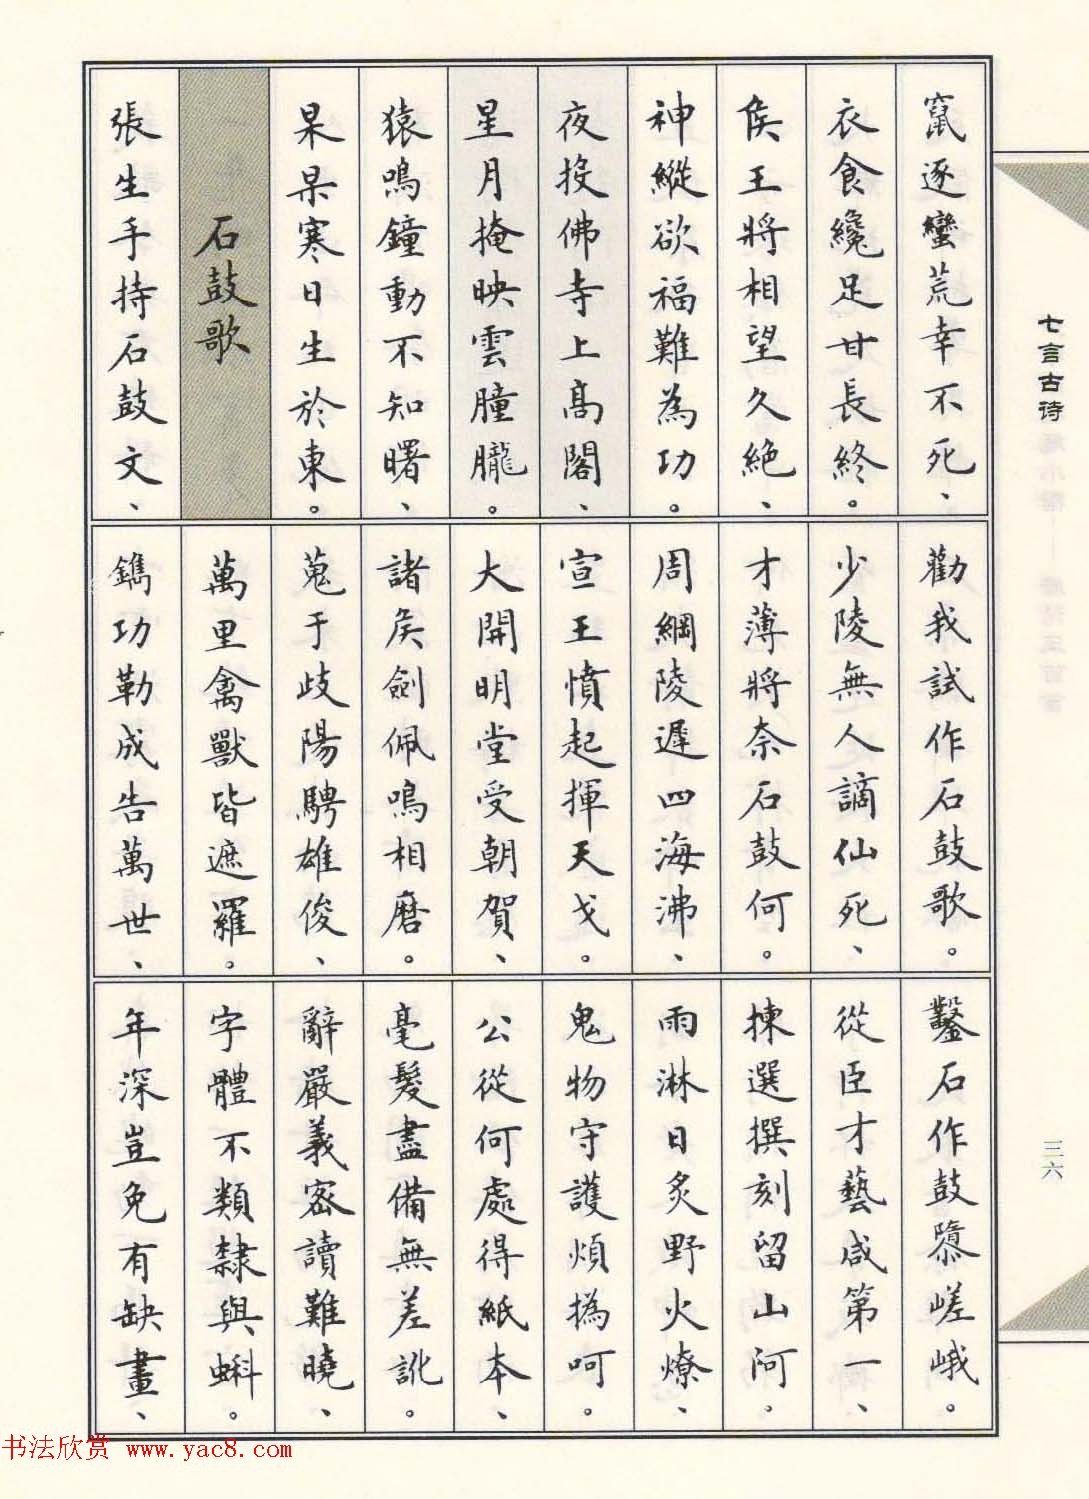 七言古诗
竄逐蠻荒幸不死、
衣食纔足甘長終。
侯王將相望久絶、
神縱欲福難為功。
夜投佛寺上高閣、
星月掩映雲朣朧。
猿鳴鐘動不知曙、
杲杲寒日生於東。
石鼓歌
張生手持石鼓文、
勸我試作石鼓歌。
少陵無人謫仙死、
才薄將奈石鼓何。
周綱陵遲四海沸、
宣王憤起揮天戈。
大開明堂受朝賀、
諸侯劍佩鳴相磨。
蒐于歧陽騁雄俊、
萬里禽獸皆遮羅。
鐫功勒成告萬世、
鑿石作鼓隳嵯峨。
從臣才藝咸第一、
揀選撰刻留山阿。
雨淋日炙野火燎、
鬼物守護煩撝呵。
公從何處得紙本、
毫髮盡備無差訛。
辭嚴義密讀難曉、
字體不類隸與蝌。
年深豈免有缺畫、
三六
书法欣赏 www.yac8.com